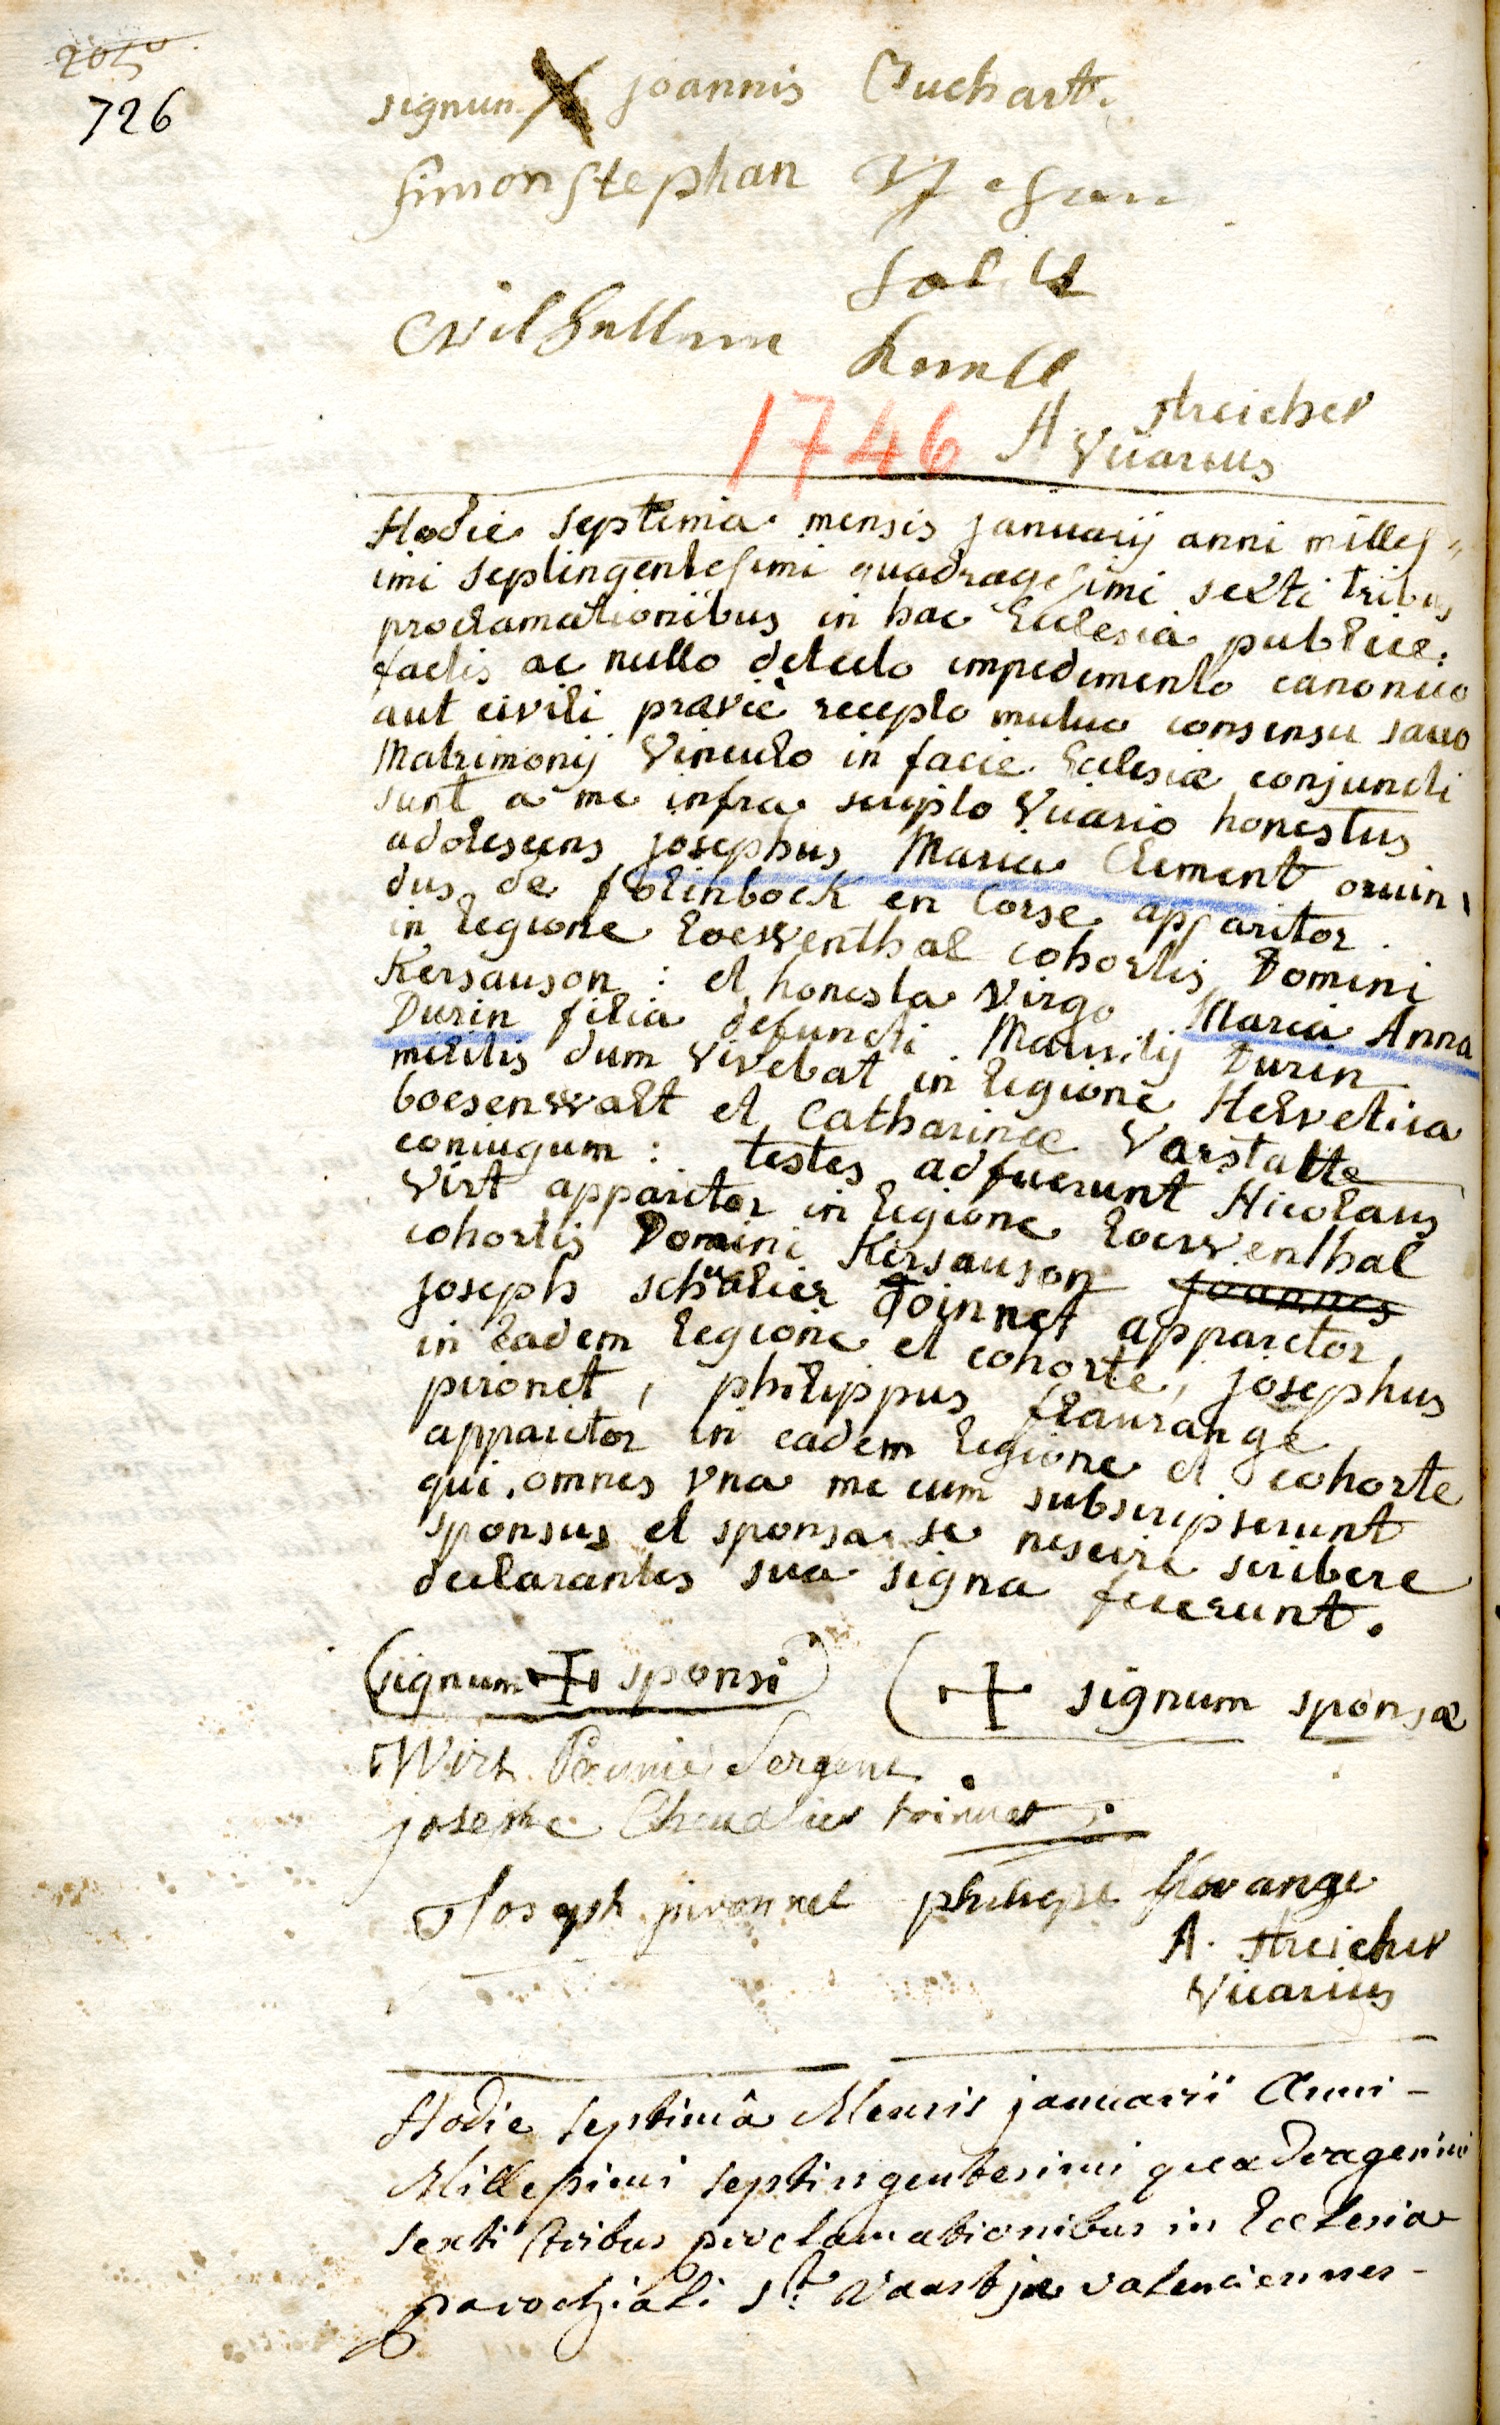 726
signum X joannis Cuchart.
simon stephan
A. streicher
Vicarius
1746
Hodie septima mensis januarij anni milles-
imi septingentesimi quadragesimi sexti tribus
proclamationibus in hac Ecclesia publice
factis ac nullo detecto impedimento canonico
aut civili praviè recepto mutuo consensu sacro
Matrimonij Vinculo in facie Ecclesiæ conjuncti
sunt a me infra scripto Vicario honestus
adolescens josephus Maria Clement oriun-
dus de en Corse apparitor
in legione Loewenthal cohortis Domini
Kersauson : et honesta virgo Maria Anna
Durin filia defuncti Mauritij Durin
militis dum vivebat in legione Helvetica
boesenwalt et Catharinæ Varstatte
coniugum : testes adfuerunt Nicolaus
Virt apparitor in legione Loewenthal
cohortis Domini Kersauson joannes
joseph schvalier Toinnet apparitor
in eadem legione et cohorte, josephus
pironet, philippus flaurange
apparitor in eadem legione et cohorte
qui omnes vna me cum subscripserunt
sponsus et sponsa se nescire scribere
declarantes sua signa fecerunt.
(signum + sponsi) ( + signum sponsæ
Wirt Sergent.
joseph Chevalier toinnet.
Joseph pironnet philippe florange
A. streicher
Vicarius
Hodie septimâ Mensis januarii Anni -
Millesimi septingentesimi quadragesimi
sexti tribus proclamationibus in Ecclesia
parochiali St. Vaast valenciennes -